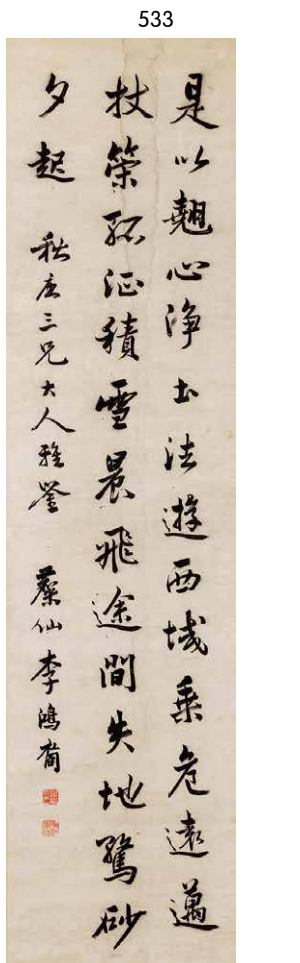 533
是以翹心淨土法遊西域乘危遠邁
杖策孤征積雪晨飛途間失地驚砂
夕起 秋三兄大人雅鑒 仙李鴻裔